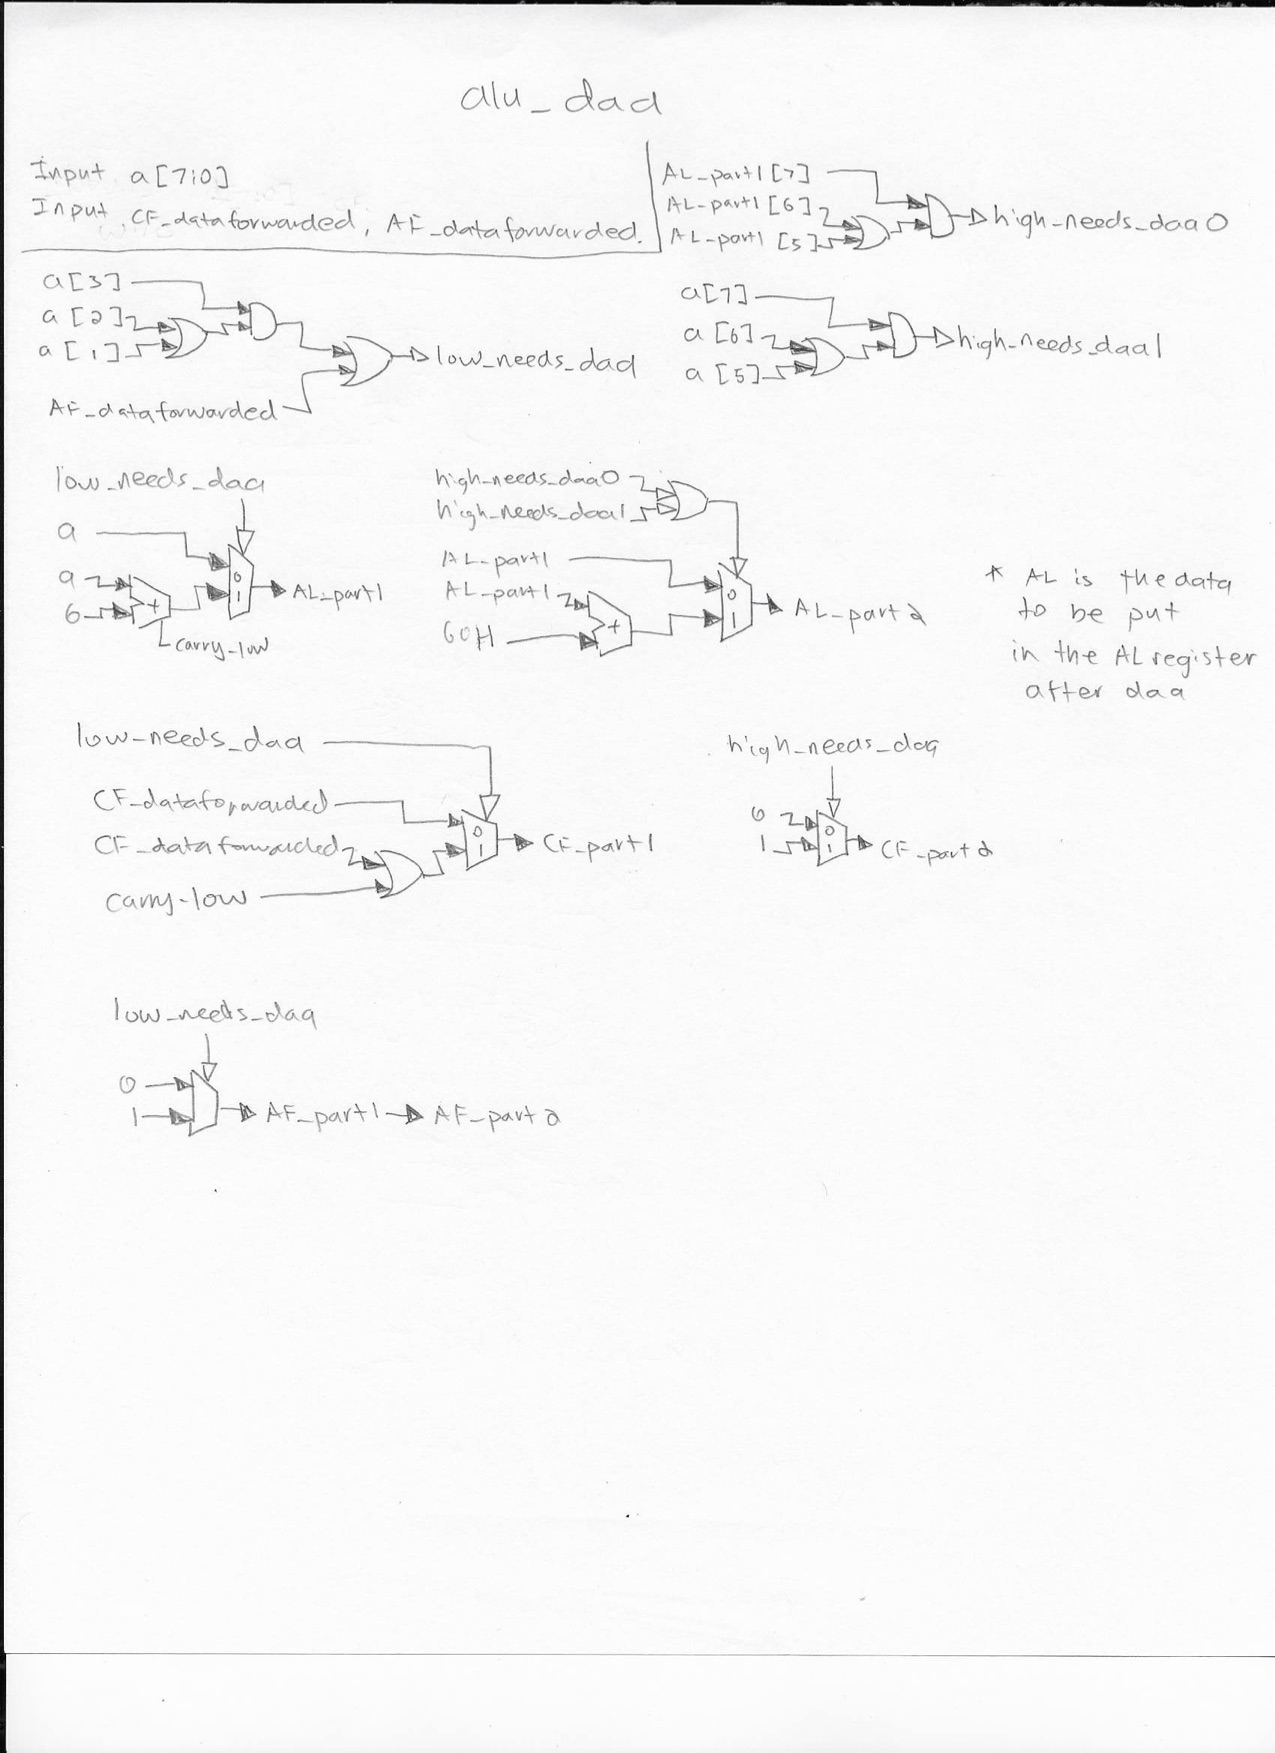 alu_daa
Input a[7:0]
Input CF_dataforwarded, AF_dataforwarded.
AL_part1[7]
AL_part1[6]
AL_part1[5]
high_needs_daa0
a[3]
a[2]
a[1]
AF_dataforwarded
low_needs_daa
a[7]
a[6]
a[5]
high_needs_daa1
low_needs_daa
a
a
6
+
carry_low
0
1
AL_part1
high_needs_daa0
high_needs_daa1
AL_part1
AL_part1
60H
+
0
1
AL_part2
* AL is the data
to be put
in the AL register
after daa
low_needs_daa
CF_dataforwarded
CF_dataforwarded
carry_low
0
1
CF_part1
high_needs_daa
0
1
0
1
CF_part2
low_needs_daa
0
1
AF_part1
AF_part2